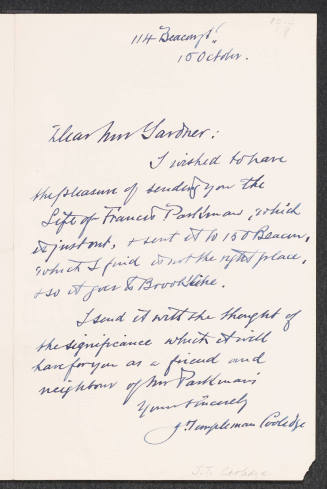 114 Beacon St.
15 October.
Dear Mrs Gardner:
I wished to have
the pleasure of sending you the
Life of Francis Parkman, which
is just out, & sent it to 150 Beacon,
which I find is not the right place,
& so it goes to Brookline.
I send it with the thought of
the significance which it will
have for you as a friend and
neighbour of Mr Parkman's
Yours sincerely
J. Templeman Coolidge
J.T. Coolidge